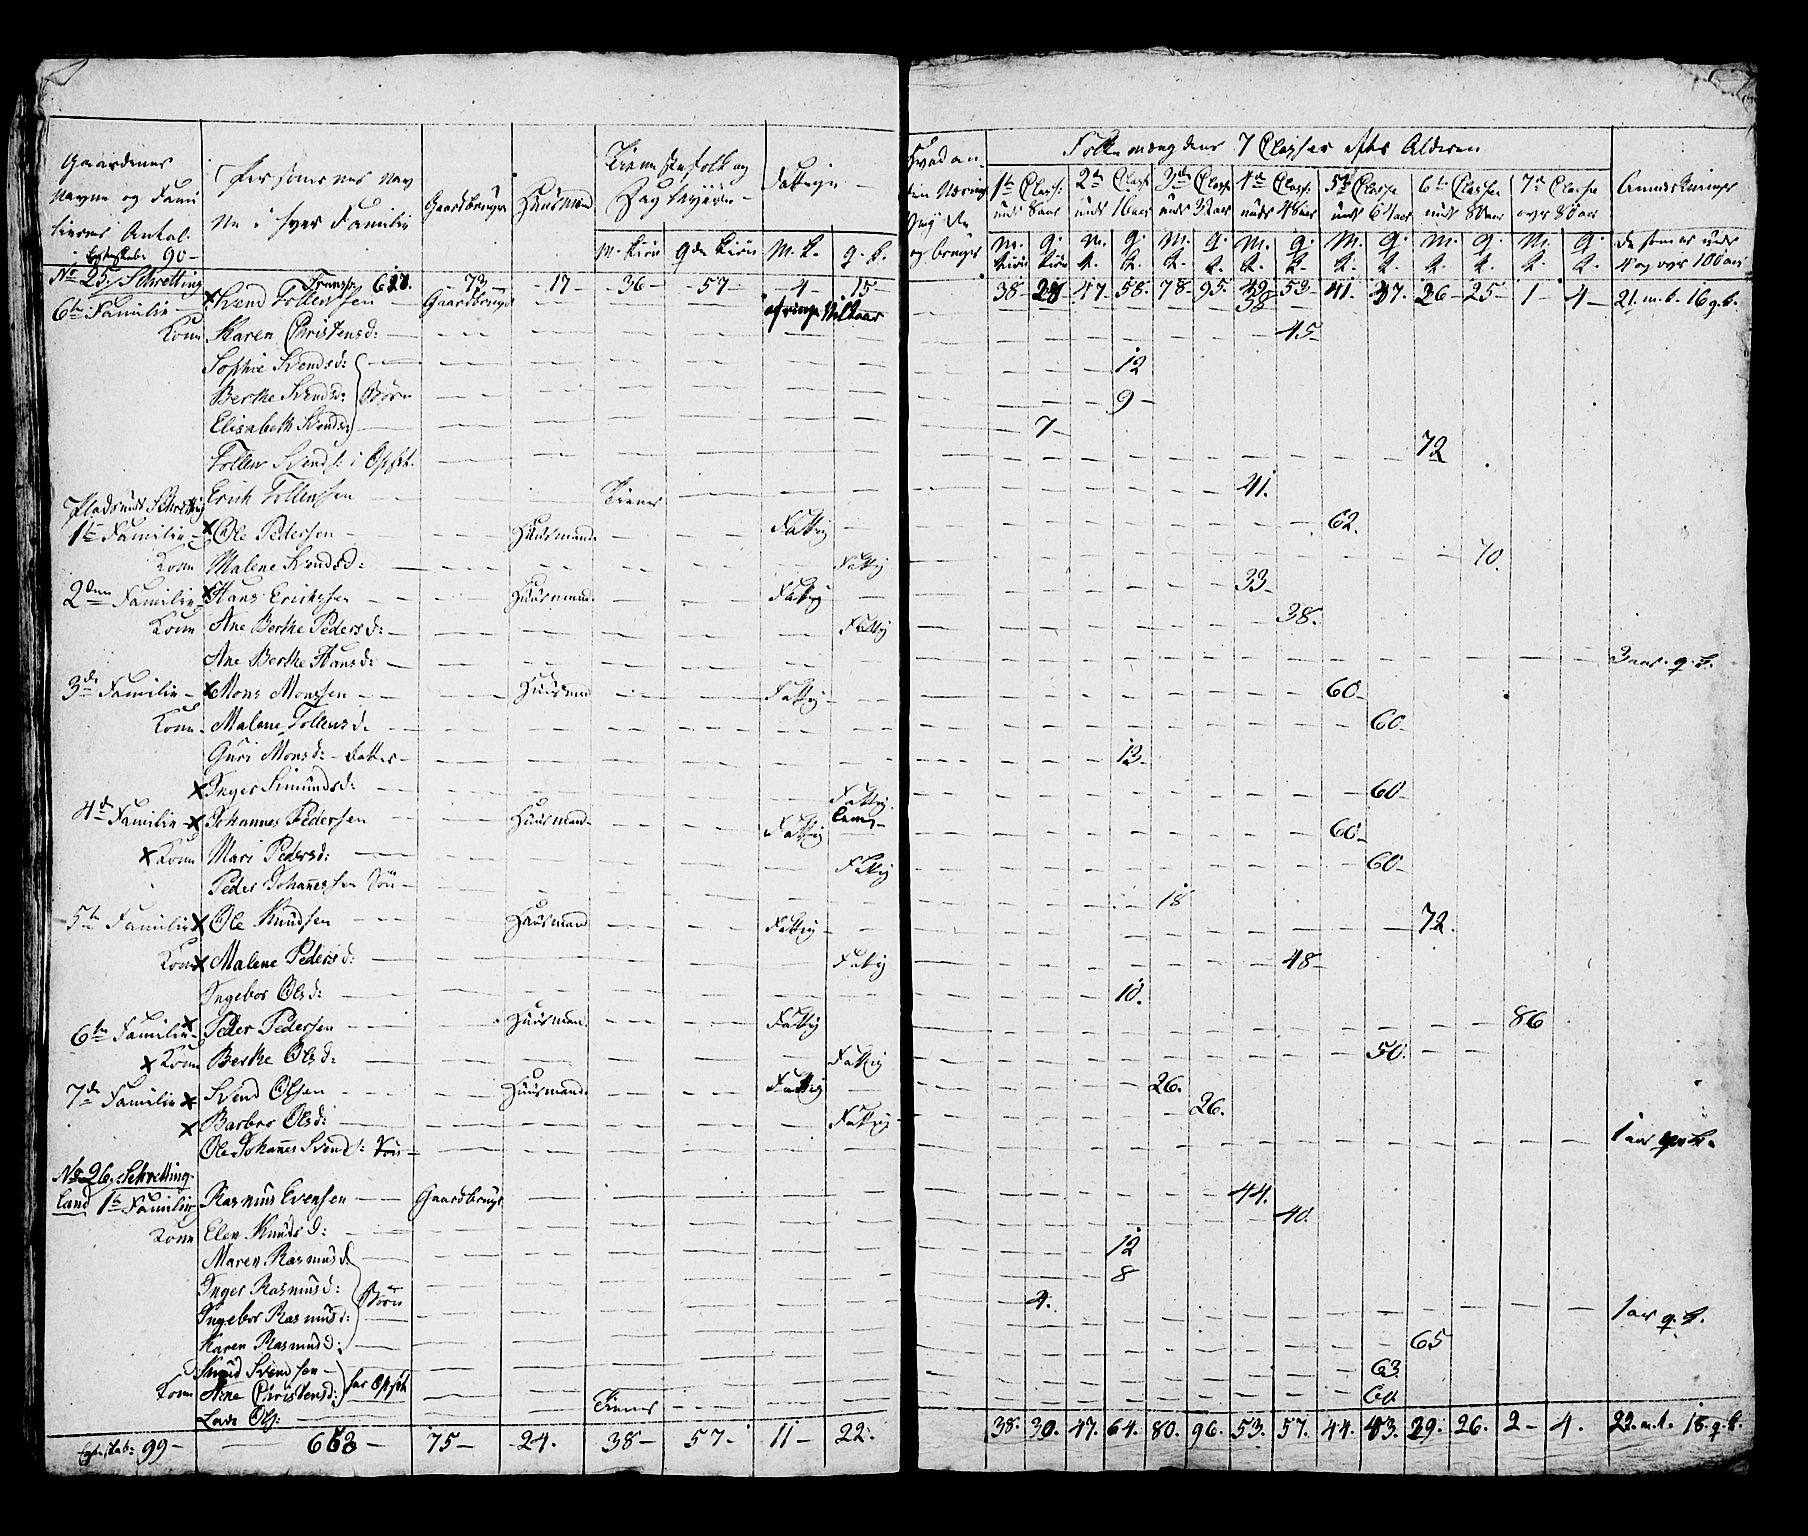 Gaardenes Navne og Familiernes Antal.
Personernes Navne i hver Familie
Gaardbruger
Huusmænd
Tieneste folk og Dagleyere
Fattige
M. Kiön
Qde Kiön
M. K.
q. K.
Hvad anden Næring
og bruger
Folkemængdens 7 Classer efter Alderen
1te Classe under 8 aar
2den Classe under 16 aar
3die Classe under 32 aar
4de Classe under 48 aar
5te Classe
6te Classe
7de Classe over 80 aar
Anmærkninger
de som er under 4 og over 100 aar
90 -
No 25. Schretting Transp. 73 - 17 - 36 - 57 - 4 - 15 38 - 28 47. 58. 78 - 95. 53 - 41. 37. 26 - 25 - 1 - 4 - 21. m. k. 16 q. k.
6te Familie - Svend Tollevsen Gaardbruger af ringe Vilkaar 38
Kone Karen Christensd: 45 -
Sophie Svendsd: 12
Berthe Svendsd: Börn 9 -
Elisabeth Svendsd: 7 -
Tollev Svends: i Opfst. 72
Erich Tollevsen Tiener 41.
Pladsnes Schretting
1te Familie Ole Pedersen - Huusmand. Fattig 62.
Kone Malene Svendsd: Fattig 70.
2den Familie Hans Erichsen Huusmand. Fattig 33 -
Kone Ane Berthe Pedersd: Fattig 38.
Ane Berthe Hansd: 3 aar. q. k.
3de Familie - Mons Monsen Huusmand Fattig 60 -
Kone Malene Tollevsd. 60
Guri Monsd: - Datter - 13.
Inger Simundsd: Fattig 60 -
4de Familie - Johannes Pedersen Huusmand - Fattig 60 -
Kone Mari Pedersd: Fattig 60 -
Peder Johannessen Sön - 18
5te Familie Ole Knudsen Huusmand Fattig 72.
Kone Malene Pedersd: Fattig 48 -
Ingebor Olsd: 10.
6te Familie - Peder Pedersen Huusmand. Fattig 86
Kone Berthe Olsd: Fattig 50.
7de Familie Svend Olsen Huusmand. Fattig 26.
Barbro Olsd: Fattig 26.
Ole Johannes Svends: Sön - 1 aar
No 26. Schrettingland 1te Familie Rasmus Evensen Gaardbruger 44.
Kone Elen Knudsd: 40.
Maren Rasmusd: 12
Inger Rasmusd: Börn 8
Ingebor Rasmusd: 4.
Karen Rasmusd: 1 aar q. k.
Knud Svendsen - har Opfst 65
Kone Ane Christensd: 63.
Lars Ols: Tiener 60.
99 - 75 - 24. 38 - 57 - 11 - 22. 38. 30. 47. 64. 80. 96. 53. 57. 44. 43. 29. 26. 2 - 4. 22. m. k. 18. q. k.